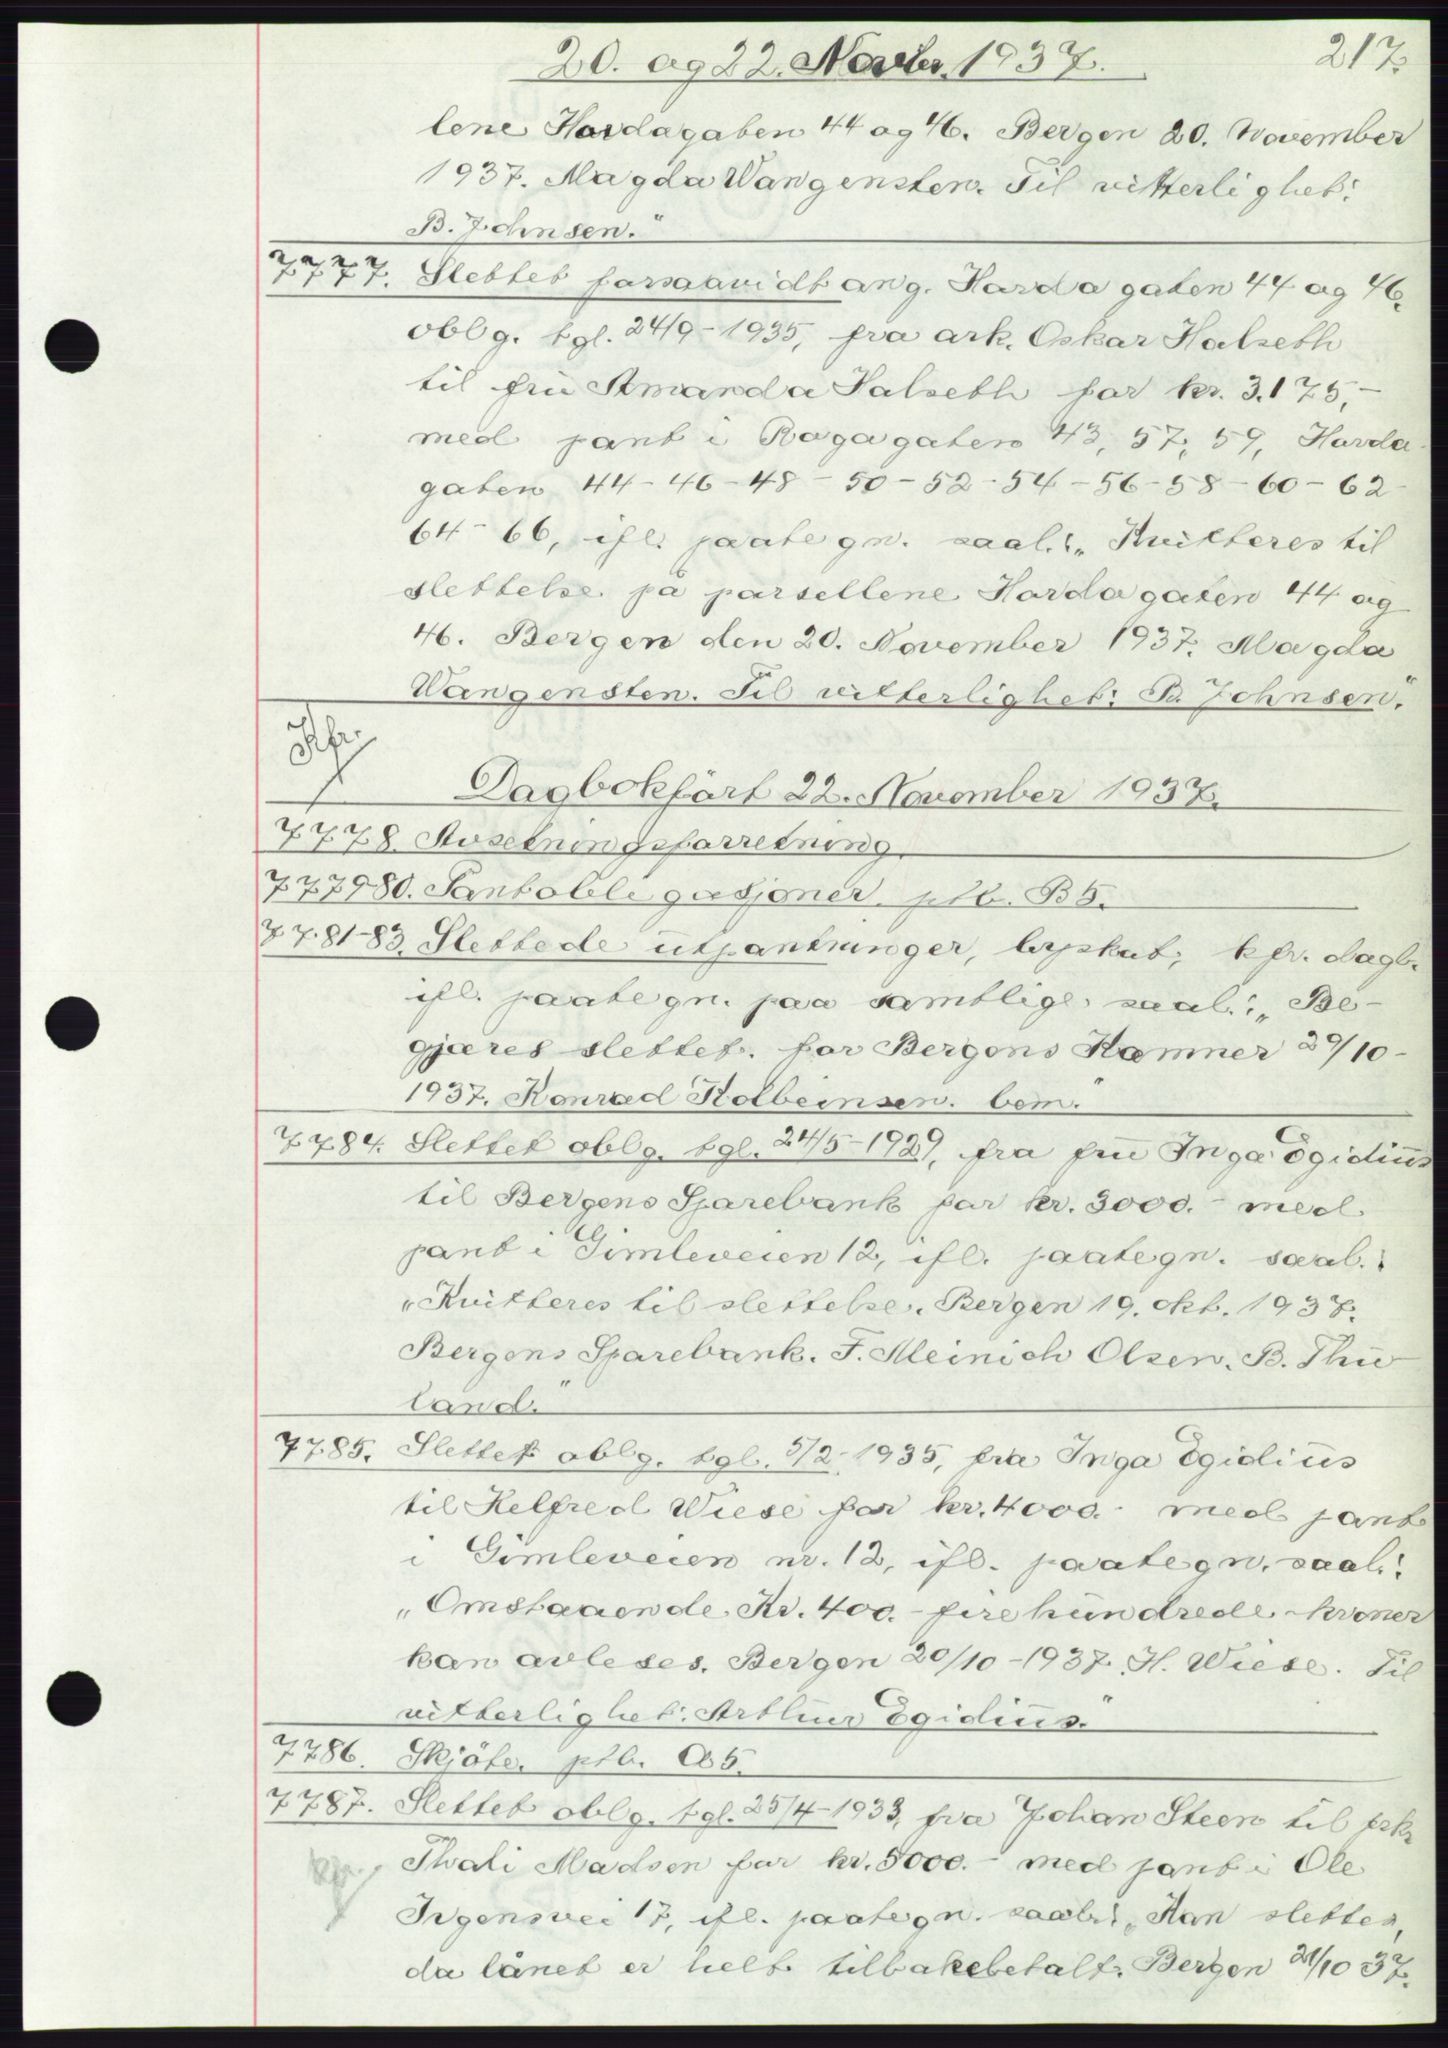 20. og 22. Novbr. 1937.
217.
lene Hardagaten 44 og 46. Bergen 20. November
1937. Magda Wangensten. Til vitterlighet:
B. Johnsen."
7777. Slettet forsaavidt ang. Hardagaten 44 og 46.
oblg. tgl. 24/9-1935, fra ark. Oskar Halseth
til fru Amanda Halseth for kr. 3.175,-
med pant i Rogagaten 43, 57, 59, Harda-
gaten 44-46-48-50-52-54-56-58-60-62
64-66, ifl. paategn. saal.: „Kvitteres til
slettelse på parsellene Hardagaten 44 og
46. Bergen den 20. November 1937. Magda
Wangensten. Til vitterlighet: B. Johnsen."
Kfr.
Dagbokført 22. November 1937.
7778. Avsetningsforretning.
7779-80. Pantobligasjoner. ptb. B5.
7781-83. Slettede utpantninger, byskat, kfr. dagb.
ifl. paategn. paa samtlige saal.: „Be-
gjæres slettet. for Bergens Kæmner 29/10-
1937. Konrad Kolbeinsen. bem."
7784. Slettet oblg. tgl. 24/5-1929, fra fru Inga Egidius
til Bergens Sparebank for kr. 3000.- med
pant i Gimleveien 12, ifl. paategn. saal.:
„Kvitteres til slettelse. Bergen 19. okt. 1937.
Bergens Sparebank. F. Meinich Olsen. B. Thu-
land."
7785. Slettet oblg. tgl. 5/2-1935, fra Inga Egidius
til Helfred Wiese for kr. 4000.- med pant
i Gimleveien nr. 12, ifl. paategn. saal.:
„Omstaaende Kr. 400.- fire hundrede kroner
kan avleses. Bergen 20/10-1937. H. Wiese. Til
vitterlighet: Arthur Egidius."
7786. Skjøte. ptb. A5.
7787. Slettet oblg. tgl. 25/4-1933, fra Johan Steen til frk.
kfr. Thali Madsen for kr. 5000.- med pant i Ole
Irgensvei 17, ifl. paategn. saal.: „Kan slettes,
da lånet er helt tilbakebetalt. Bergen 21/10 37.